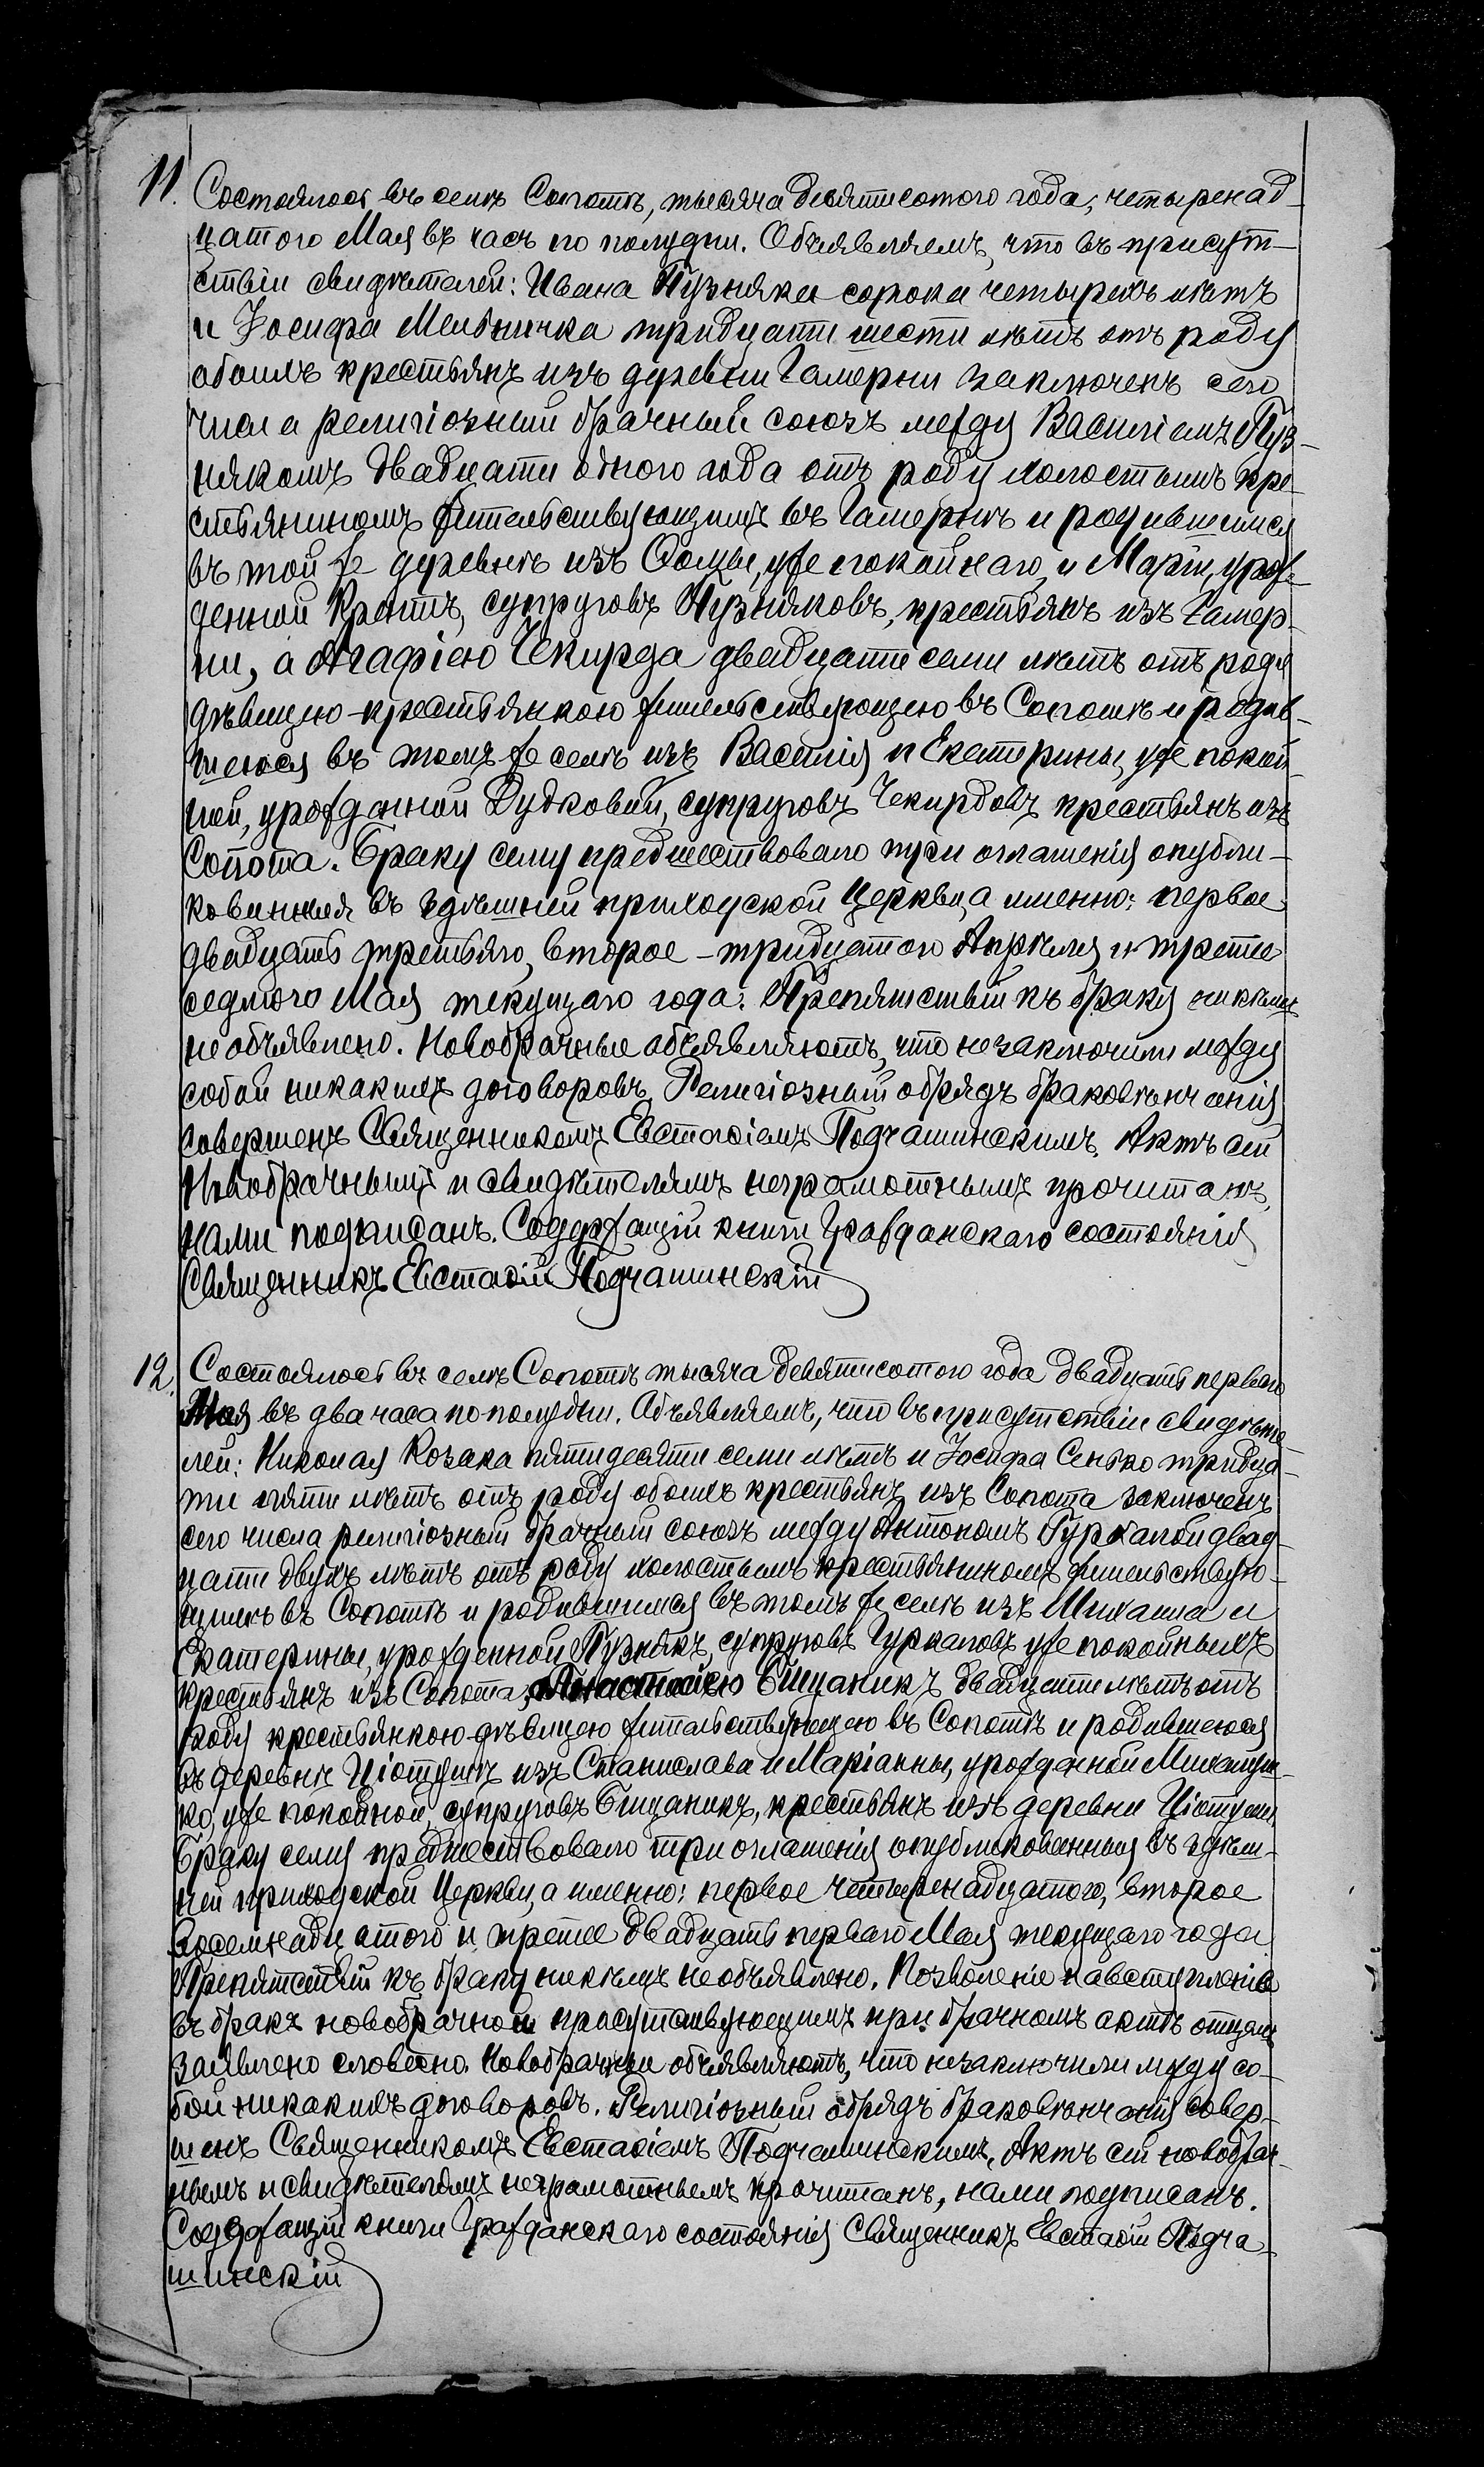 11. Состоялось въ селѣ Сопотѣ, тысяча девятисотого года, четыренад-
цатого Мая въ часъ по полудни. Объявляемъ, что въ присут-
ствіи свидѣтелей: Ивана Пузняка сорока четырехъ лѣтъ
и Іосифа Мельничка тридцати шести лѣтъ отъ роду
обоихъ крестьянъ изъ деревни Гамерни заключенъ сего
числа религіозный брачный союзъ между Василіемъ Пуз-
някомъ двадцати одного года отъ роду холостымъ кре-
стьяниномъ жительствующимъ въ Гамернѣ и родившимся
въ той же деревнѣ изъ Ѳомы, уже покойнаго, и Маріи, урож-
денной Кретъ, супруговъ Пузняковъ, крестьянъ изъ Гамер-
ни, а Агафіею Чекирда двадцати семи лѣтъ отъ роду
дѣвицею-крестьянкою жительствующею въ Сопотѣ и родив-
шеюся въ томъ же селѣ изъ Василія и Екатерины, уже покой-
ной, урожденной Дудковой, супруговъ Чекирдовъ крестьянъ изъ
Сопота. Браку сему предшествовало три оглашенія опубли-
кованныя въ здѣшней приходской Церкви, а именно: первое
двадцать третьяго, второе - тридцатого Апрѣля и третіе
седмого Мая текущаго года. Препятствій къ браку никѣмъ
не объявлено. Новобрачные объявляютъ, что незаключили между
собой никакихъ договоровъ. Религіозный обрядъ браковѣнчанія
совершенъ Священникомъ Евстафіемъ Подчашинскимъ. Актъ сей
Новобрачнымъ и свидѣтелямъ неграмотнымъ прочитанъ,
нами подписанъ. Содержащій книги Гражданскаго состоянія
Священникъ Евстафій Подчашинскій
12. Состоялось въ селѣ Сопотѣ тысяча девятисотого года двадцать первого
Мая въ два часа по полудни. Объявляемъ, что въ присутствіи свидѣте-
лей: Николая Козака пятидесяти семи лѣтъ и Іосифа Сенько тридца-
ти пяти лѣтъ отъ роду обоихъ крестьянъ изъ Сопота заключенъ
сего числа религіозный брачный союзъ между Антономъ Гуркалой двад-
цати двухъ лѣтъ отъ роду холостымъ крестьяниномъ жительствую-
щимъ въ Сопотѣ и родившимся въ томъ же селѣ изъ Михаила и
Екатерины, урожденной Пузнякъ, супруговъ Гуркаловъ уже покойныхъ
крестьянъ изъ Сопота, а Анастасіею Бицаникъ двадцати лѣтъ отъ
роду крестьянкою-дѣвицею жительствующею въ Сопотѣ и родившеюся
въ деревнѣ Ціотушѣ изъ Станислава и Маріанны, урожденной Михалуш-
ко, уже покойной, супруговъ Бицаникъ, крестьянъ изъ деревни Ціотуши.
Браку сему предшествовало три оглашенія опубликованныя въ здѣш-
ней приходской Церкви, а именно: первое четыренадцатого, второе
восемнадцатого и третее двадцать первого Мая текущаго года.
Препятствій къ браку никѣмъ не объявлено. Позволеніе на вступленіе
въ бракъ новобрачной присутствующимъ при брачномъ актѣ отцемъ
заявлено словесно. Новобрачные объявляютъ, что незаключили между со-
бой никакихъ договоровъ. Религіозный обрядъ браковѣнчанія совер-
шенъ Священникомъ Евстафіемъ Подчашинскимъ. Актъ сей новобрач-
нымъ и свидѣтелямъ неграмотнымъ прочитанъ, нами подписанъ.
Содержащій книги Гражданскаго состоянія Священникъ Евстафій Подча-
шинскій